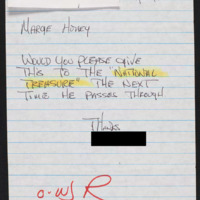 MARGE HONEY
WOULD YOU PLEASE GIVE
THIS TO THE "NATIONAL
TREASURE" THE NEXT
TIME HE PASSES THROUGH
THANKS